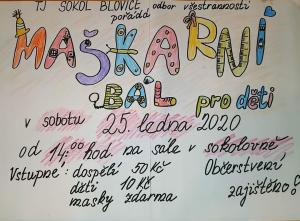 TJ SOKOL BLOVICE odbor všestrannosti
pořádá
MAŠKARNÍ
BAL pro děti
v sobotu 25. ledna 2020
od 14,00 hod na sále v sokolovně
Vstupné: dospělí 50 Kč Občerstvení
děti 10 Kč zajištěno!
masky zdarma